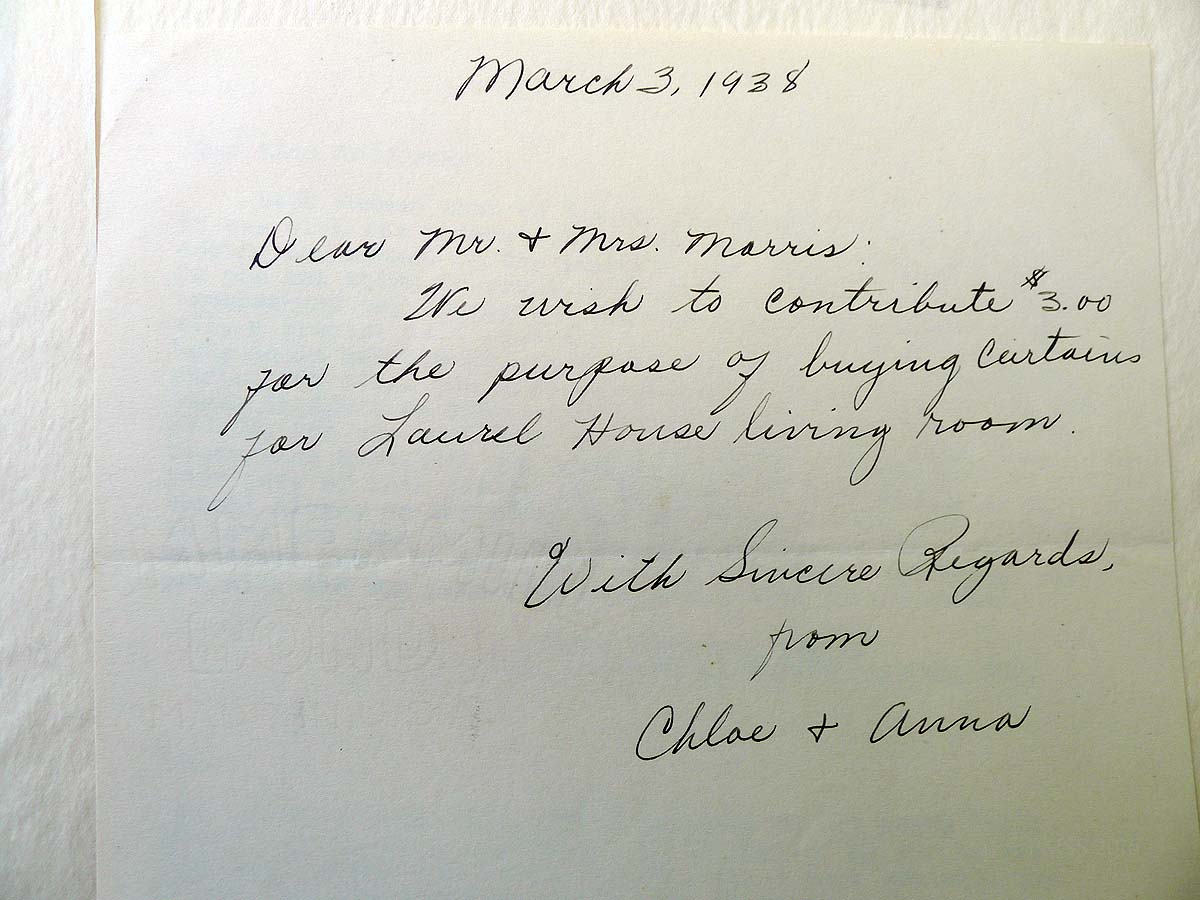 March 3, 1938
Dear Mr. & Mrs. Morris:
We wish to contribute $3.00
for the purpose of buying Curtains
for Laurel House living room.
With Sincere Regards,
from
Chloe & Anna